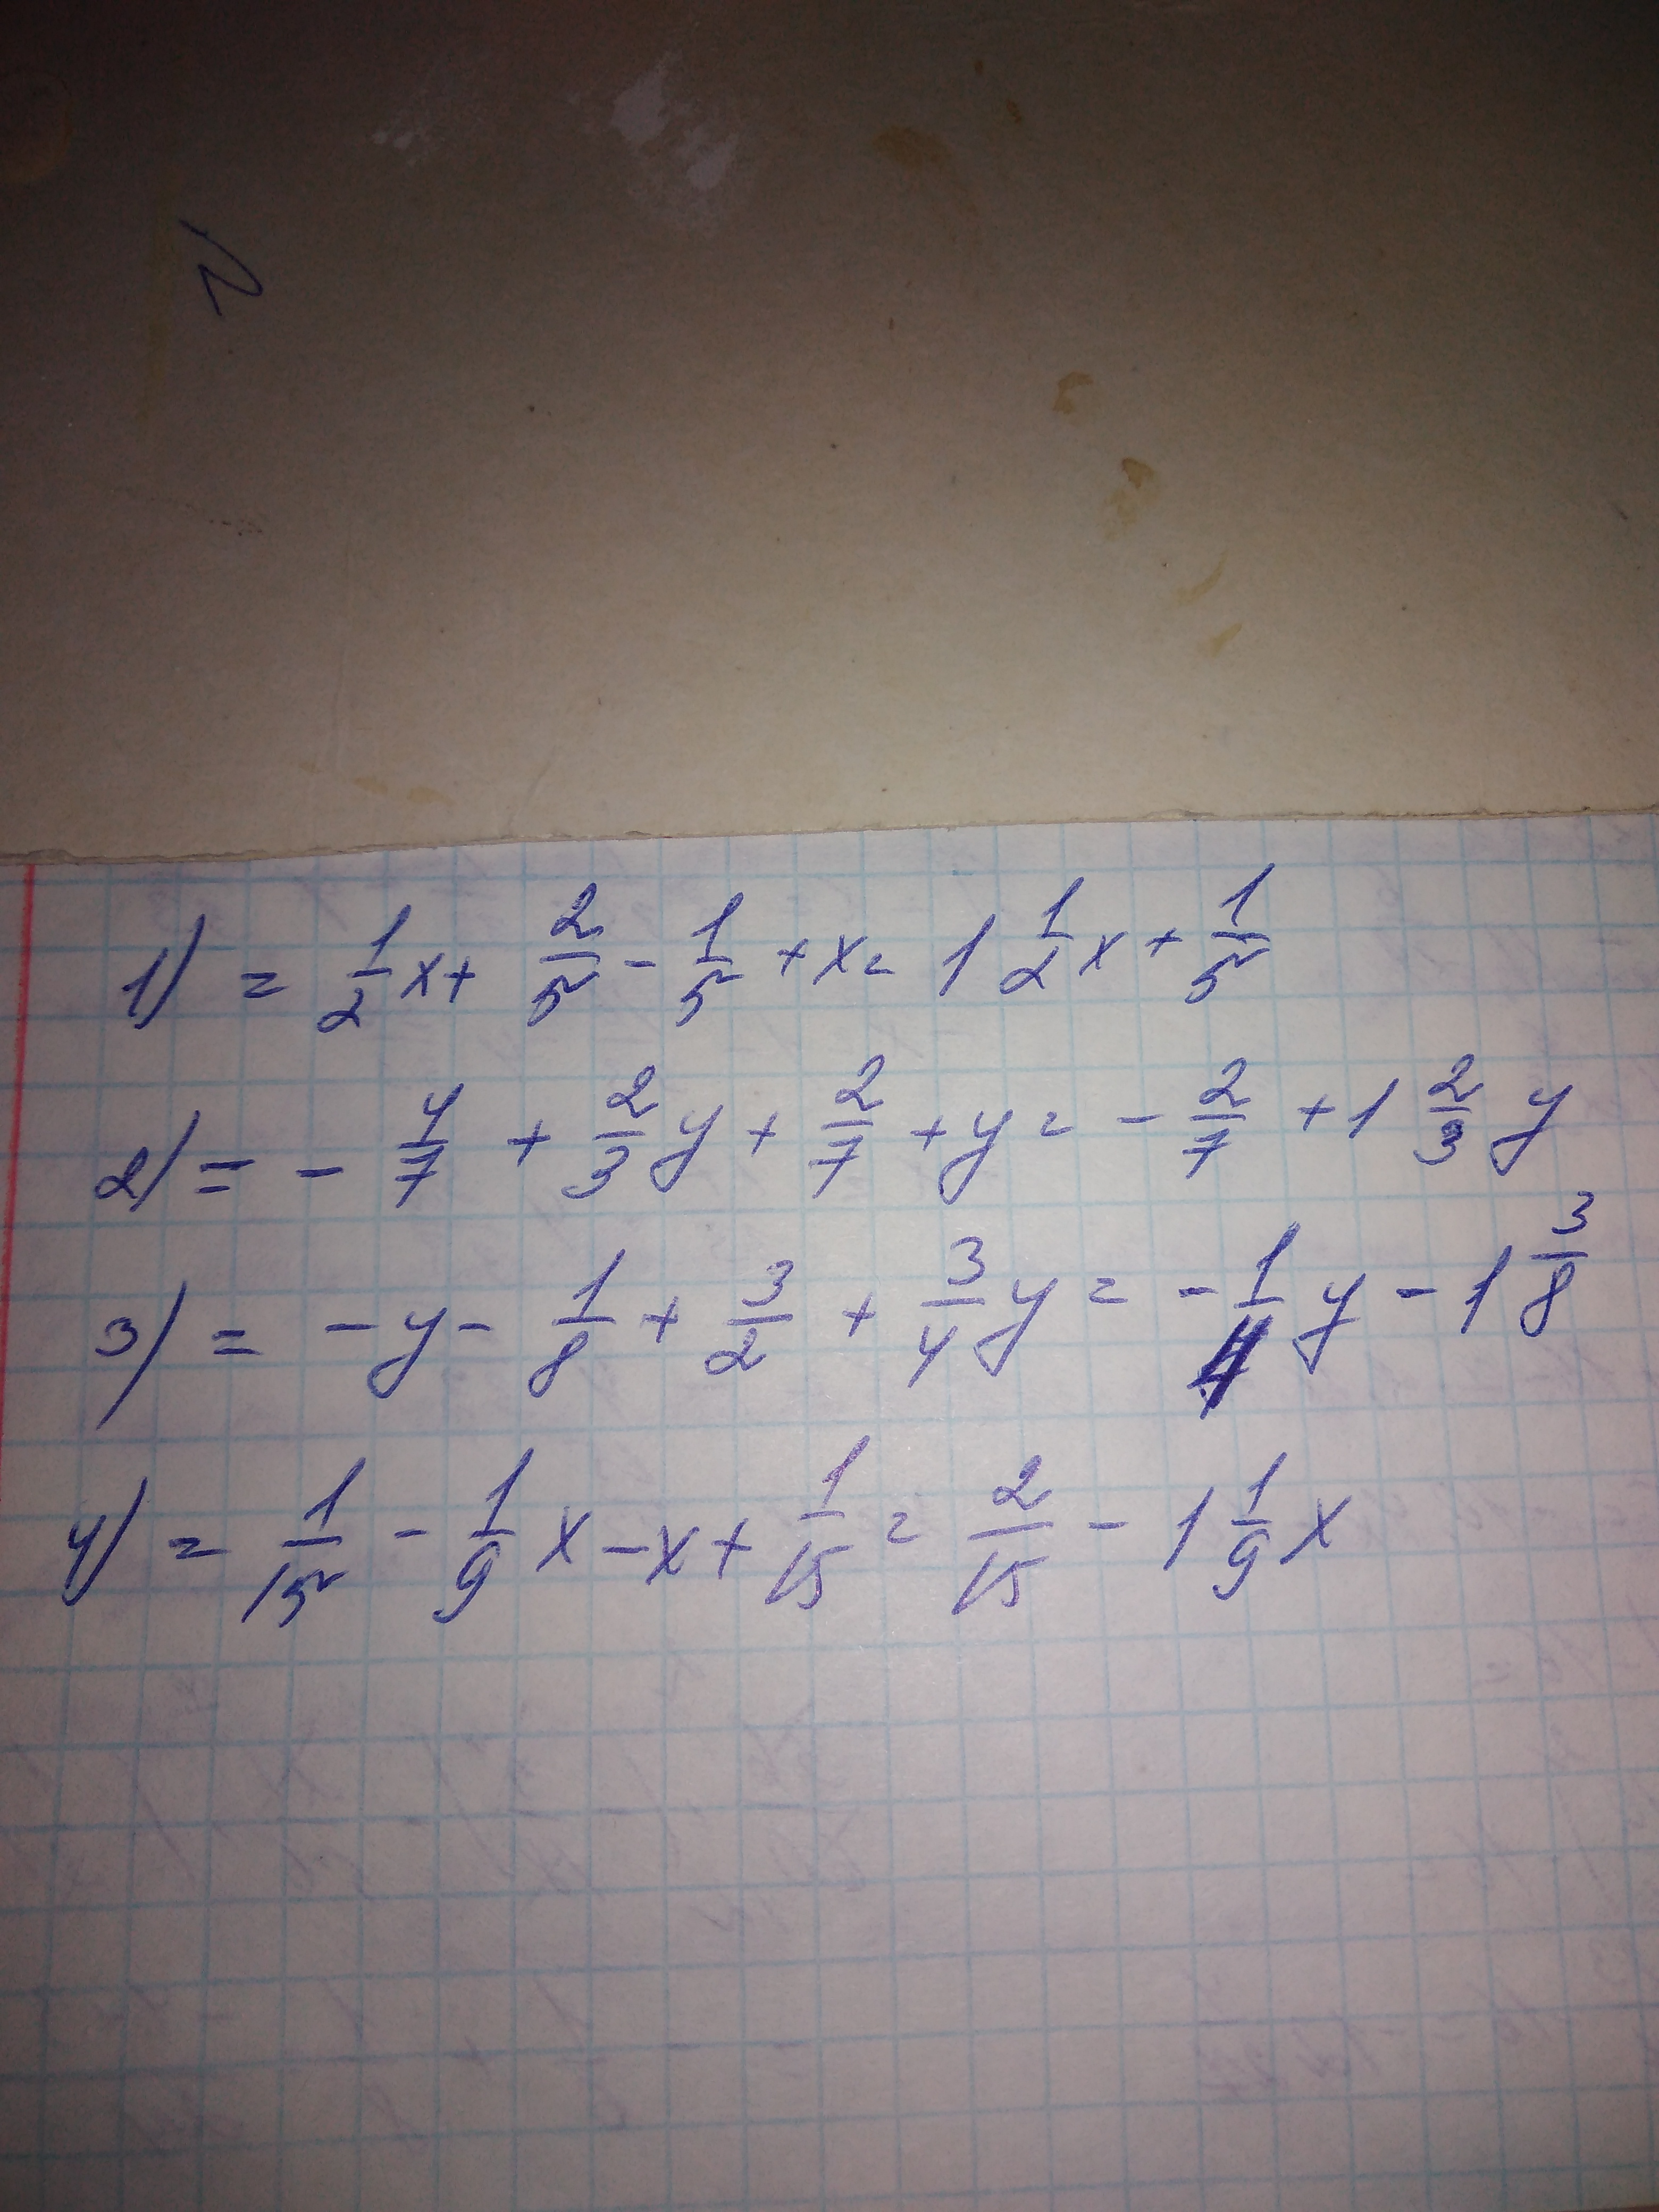 N
1) = 1/2 x + 2/5 - 1/5 + x = 1 1/2 x + 1/5
2) = - 4/7 + 2/3 y + 2/7 + y = - 2/7 + 1 2/3 y
3) = - y - 1/8 + 3/2 + 3/4 y = - 1/4 y - 1 3/8
4) = 1/15 - 1/9 x - x + 1/15 = 2/15 - 1 1/9 x